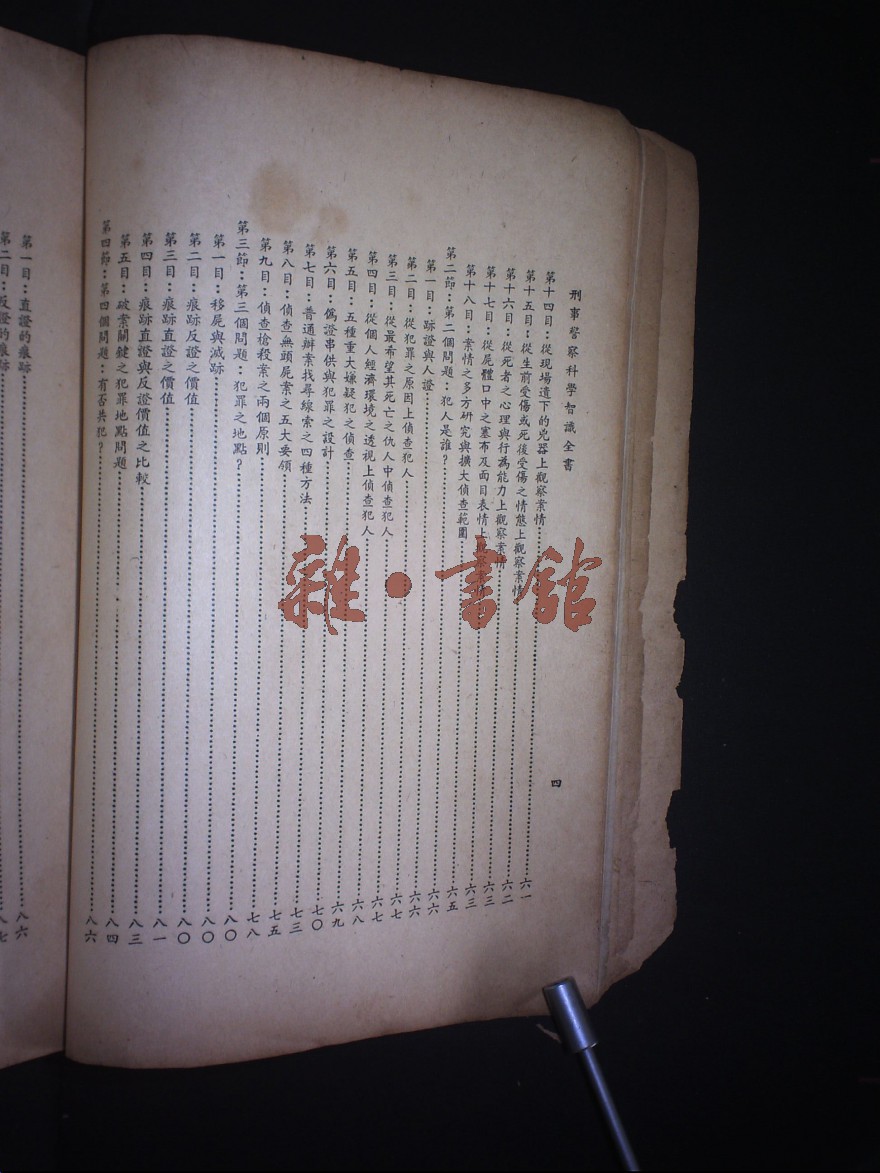 刑事警察科學智識全書
第十四目：從現場遺下的兇器上觀察案情……六一
第十五目：從生前受傷或死後受傷之情態上觀察案情……六二
第十六目：從死者之心理與行為能力上觀察案情……六三
第十七目：從屍體口中之塞布及面目表情上觀察案情……六三
第十八目：案情之多方研究與擴大偵查範圍……六五
第二節：第二個問題：犯人是誰？……六六
第一目：跡證與人證……六六
第二目：從犯罪之原因上偵查犯人……六七
第三目：從最希望其死亡之仇人中偵查犯人……六七
第四目：從個人經濟環境之透視上偵查犯人……六八
第五目：五種重大嫌疑犯之偵查……六九
第六目：偽證串供與犯罪之設計……七〇
第七目：普通辦案找尋線索之四種方法……七三
第八目：偵查無頭屍案之五大要領……七五
第九目：偵查槍殺案之兩個原則……七八
第三節：第三個問題：犯罪之地點？……八〇
第一目：移屍與滅跡……八〇
第二目：痕跡反證之價值……八〇
第三目：痕跡直證之價值……八一
第四目：痕跡直證與反證價值之比較……八三
第五目：破案關鍵之犯罪地點問題……八四
第四節：第四個問題：有否共犯？……八六
四
第一目：直證的痕跡……八六
第二目：反證的痕跡……八七
雜·書館